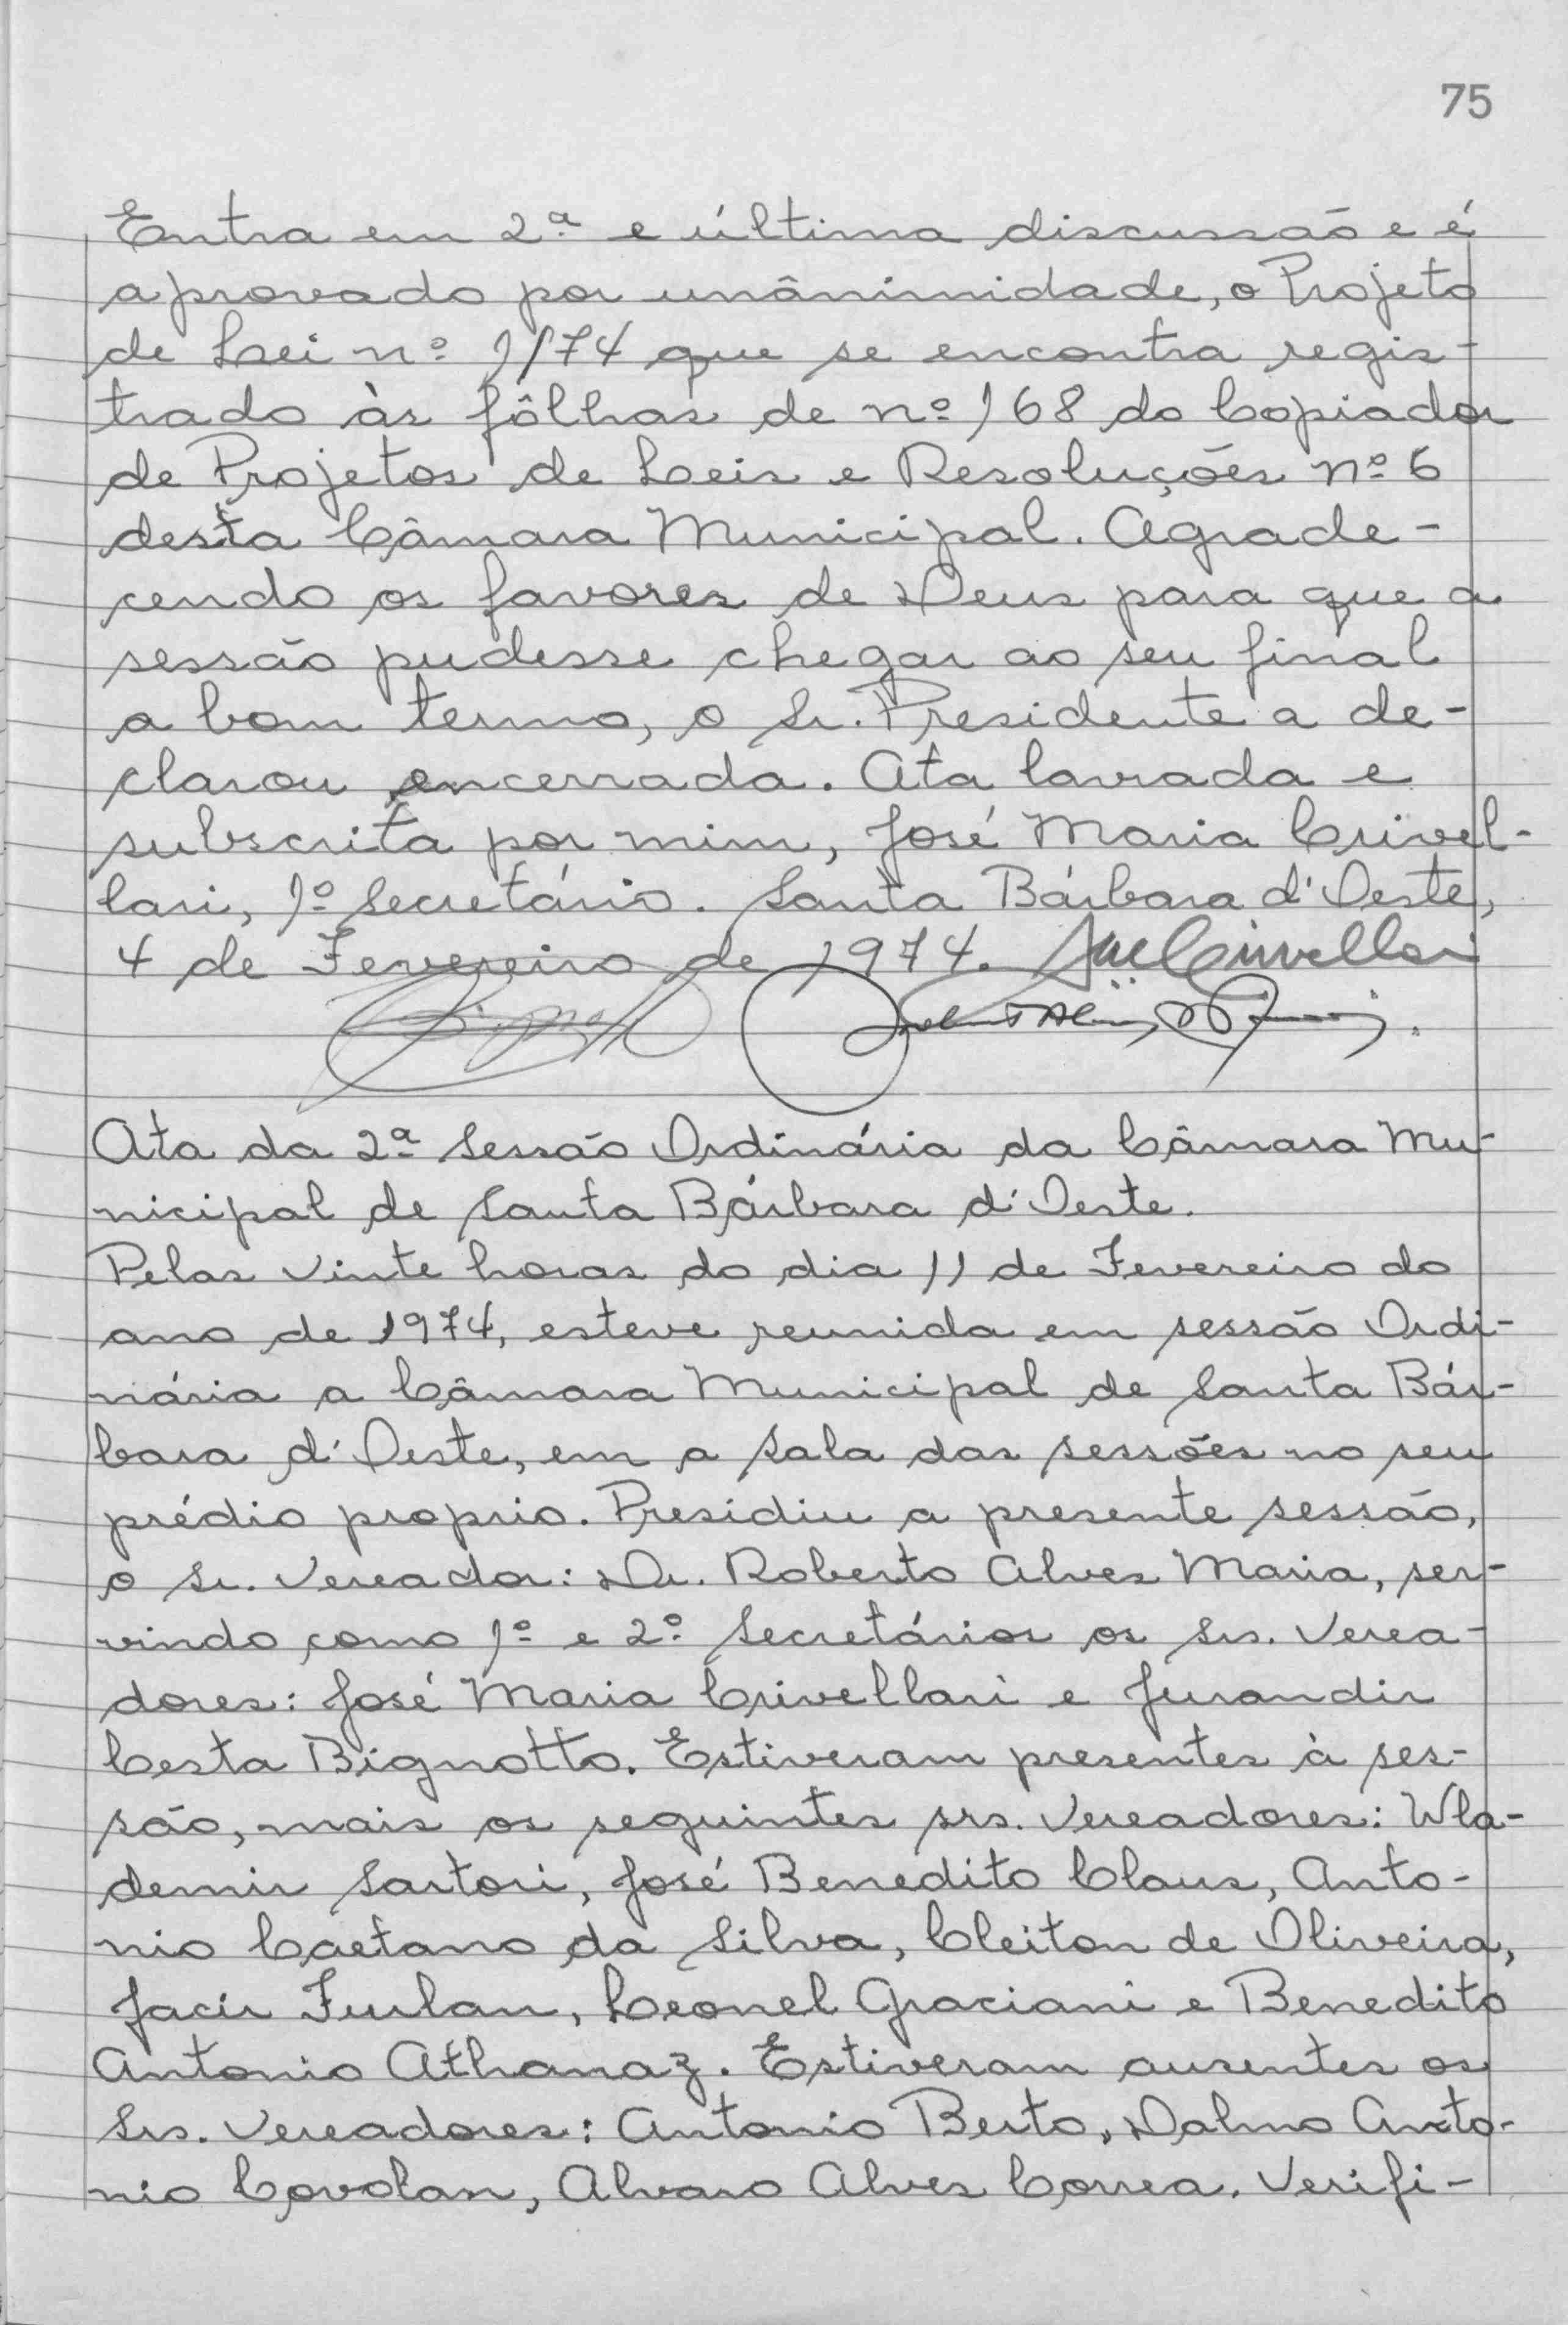 75
Entra em 2ª e última discussão e é
aprovado por unânimidade, o Projeto
de Lei nº 1/74 que se encontra regis-
trado às fôlhas de nº 168 do Copiador
de Projetos de Leis e Resoluções nº 6
desta Câmara Municipal. Agrade-
cendo os favores de Deus para que a
sessão pudesse chegar ao seu final
a bom termo, o Sr. Presidente a de-
clarou encerrada. Ata lavrada e
subscrita por mim, José Maria Crivel-
lari, 1º Secretário. Santa Bárbara d'Oeste,
4 de Fevereiro de 1974. Crivellari
Ata da 2ª Sessão Ordinária da Câmara Mu-
nicipal de Santa Bárbara d'Oeste.
Pelas vinte horas do dia 11 de Fevereiro do
ano de 1974, esteve reunida em sessão Ordi-
nária a Câmara Municipal de Santa Bár-
bara d'Oeste, em a sala das sessões no seu
prédio proprio. Presidiu a presente sessão,
o Sr. Vereador: Dr. Roberto Alves Maria, ser-
vindo como 1º e 2º Secretários os Srs. Verea-
dores: José Maria Crivellari e Jurandir
Cesta Bignotto. Estiveram presentes à ses-
são, mais os seguintes srs. Vereadores: Wla-
demir Sartori, José Benedito Claus, Anto-
nio Caetano da Silva, Cleiton de Oliveira,
Jacir Furlan, Leonel Graciani e Benedito
Antonio Athanaz. Estiveram ausentes os
Srs. Vereadores: Antonio Berto, Dalmo Anto-
nio Covolan, Alvaro Alves Correa. Verifi-